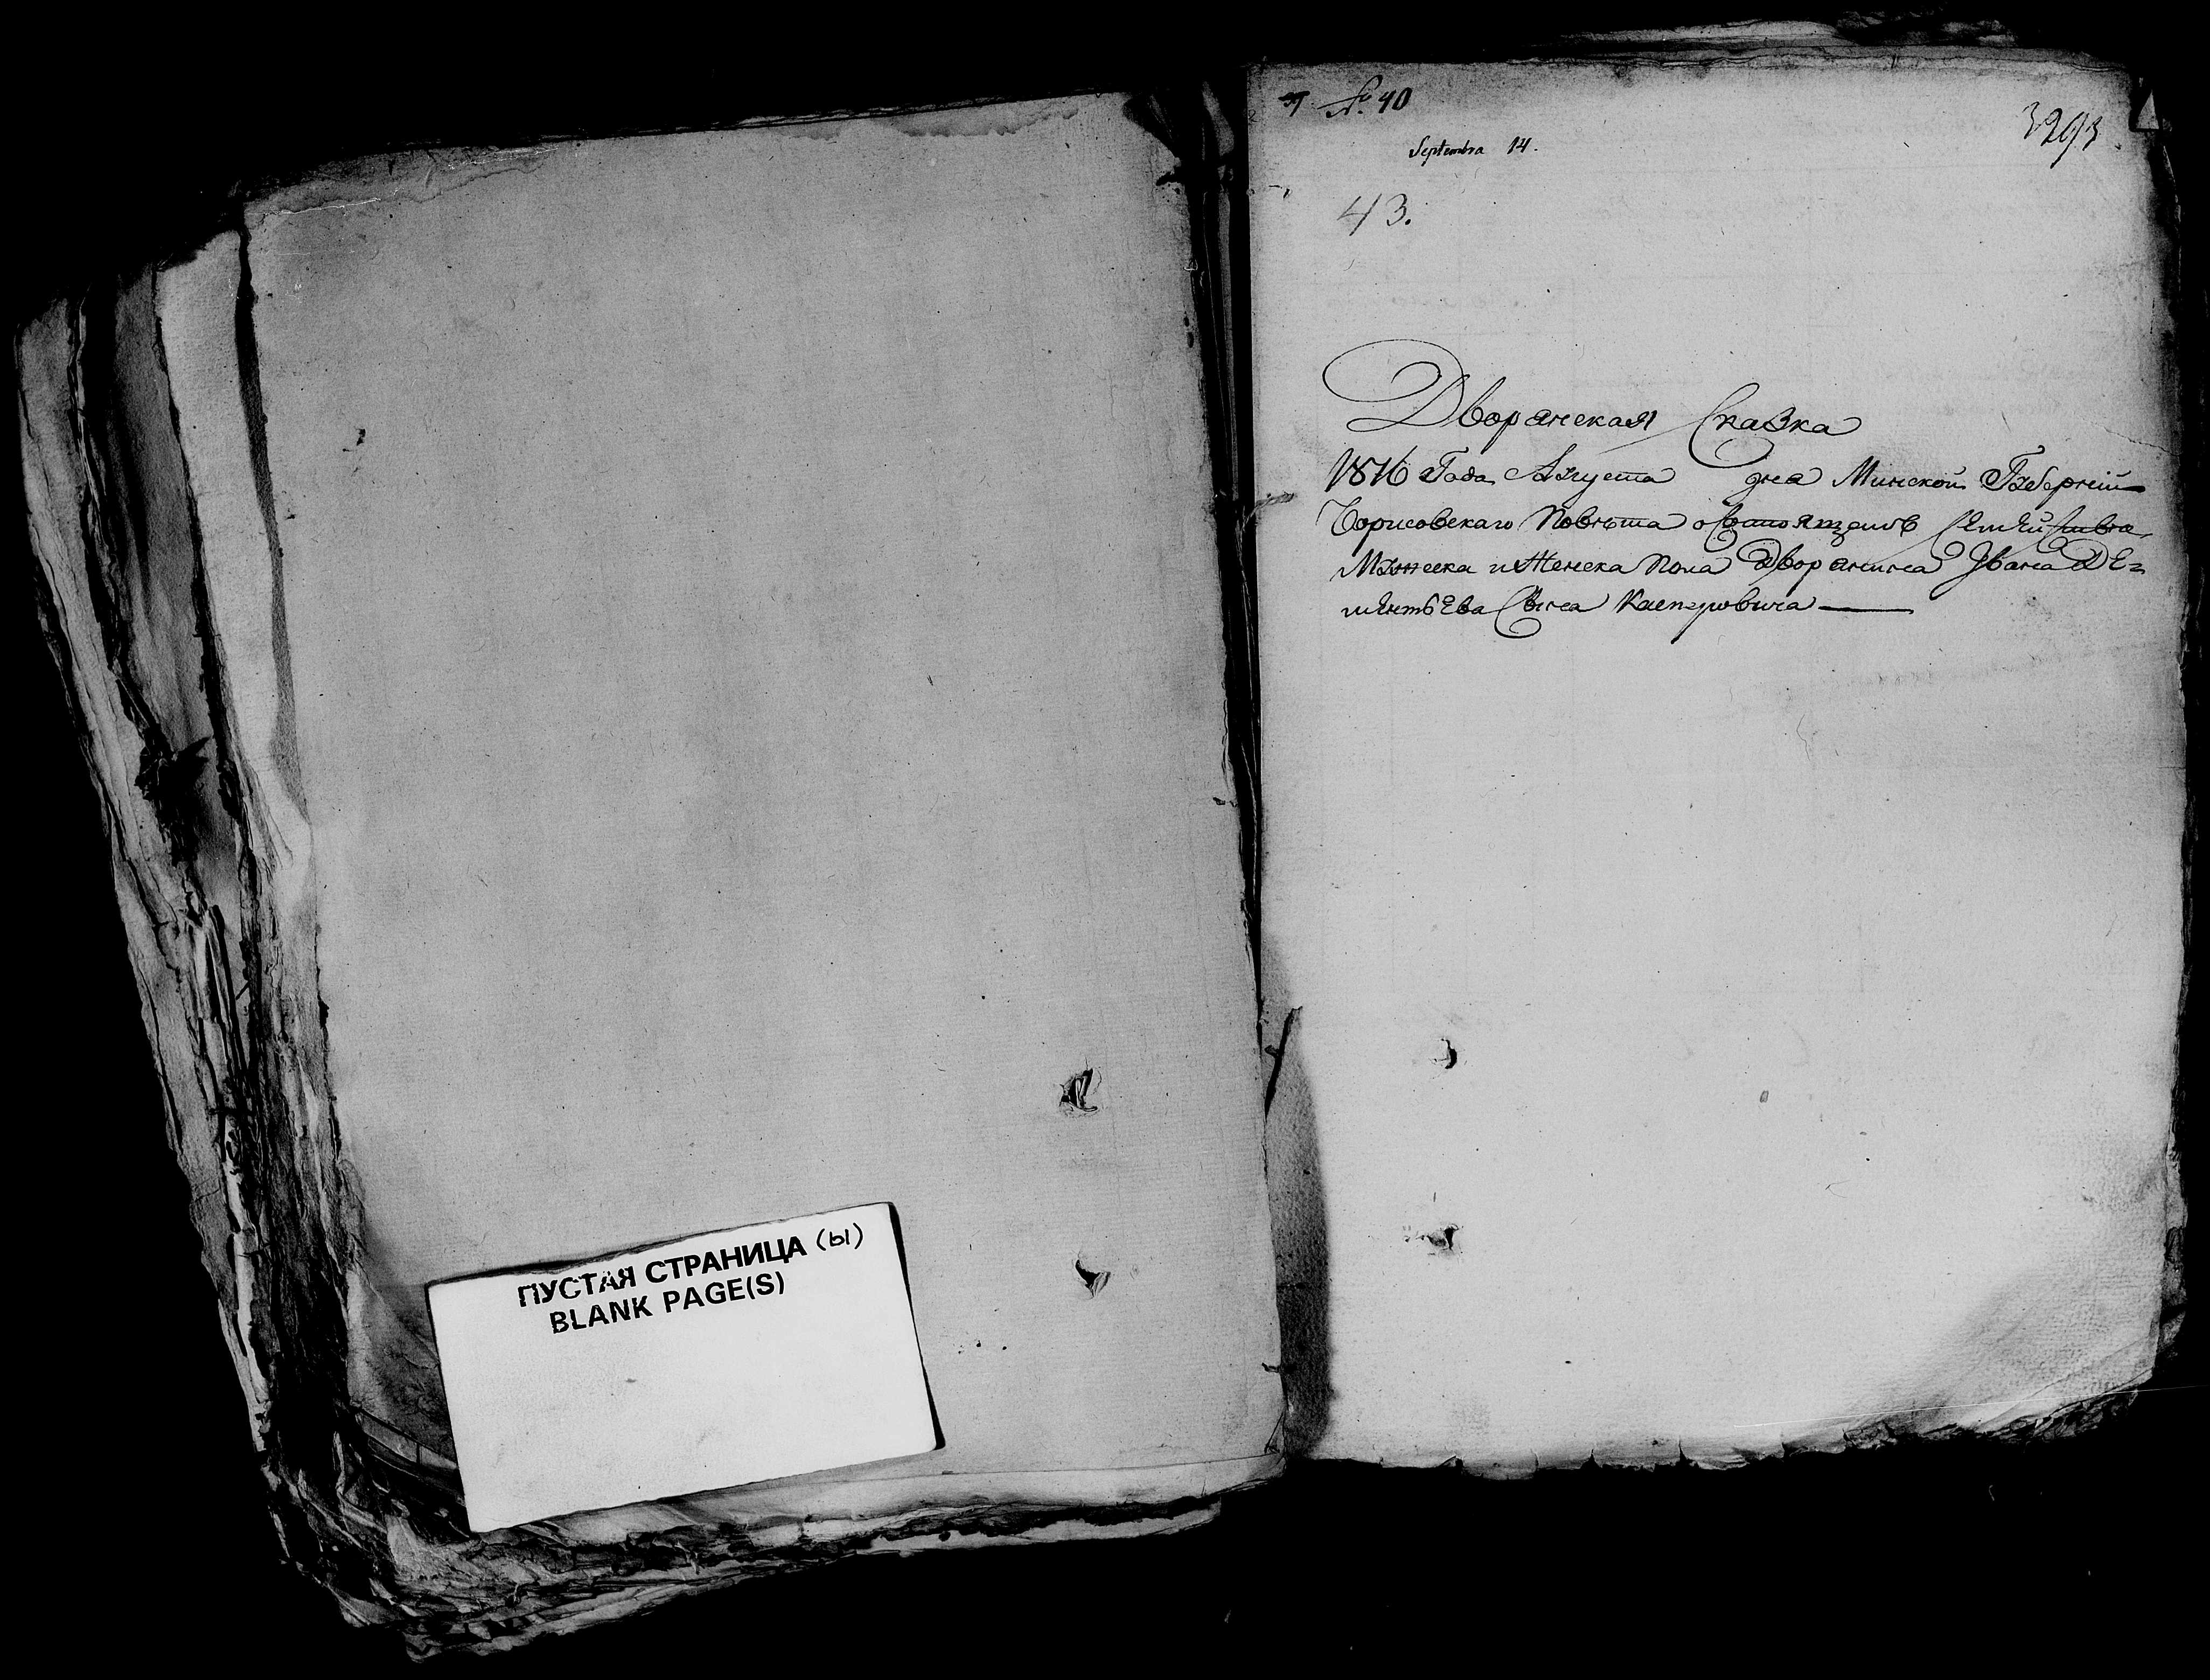 ПУСТАЯ СТРАНИЦА (ы)
BLANK PAGE(S)
№ 40
Septembra 14.
43.
Дворянская Сказка
1816 Года Августа дня Минской Губерній
Борисовскаго Повѣта о Состоящемъ Семей
Мужеска и Женска Пола Дворянина Ивана Де=
ментьева Сына Касперовича